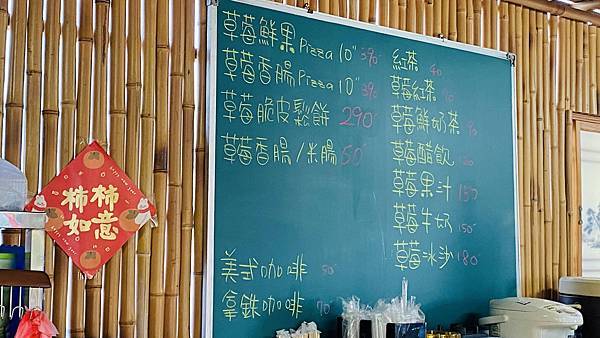 草莓鮮果Pizza 10" 390
草莓香腸Pizza 10" 390
草莓脆皮鬆餅 290
草莓香腸/米腸 50
美式咖啡 50
拿鉄咖啡 70
紅茶 40
草莓紅茶
草莓鮮奶茶
草莓醋飲
草莓果汁 150
草莓牛奶 150
草莓冰沙 180
柿柿
如意